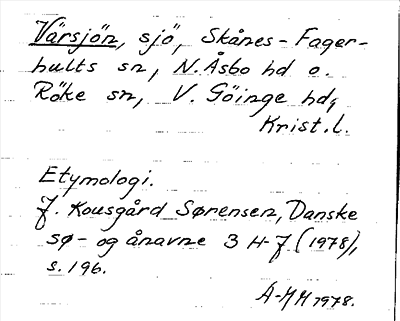 Värsjön, sjö, Skånes-Fager-
hults sn, N. Åsbo hd o.
Röke sn, V. Göinge hd,
Krist.l.
Etymologi.
J. Kousgård Sørensen, Danske
sø- og ånavne 3 H-J (1978),
s. 196.
A-MH 1978.